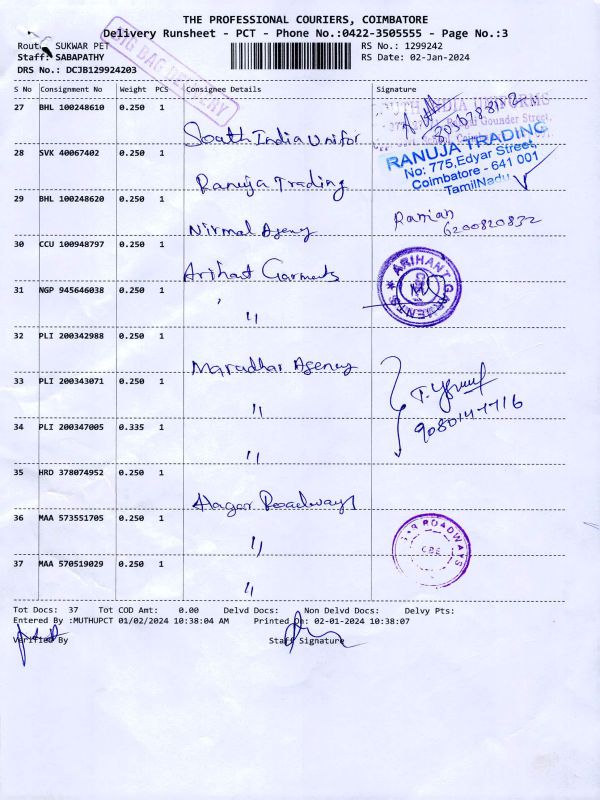 THE PROFESSIONAL COURIERS, COIMBATORE
Delivery Runsheet - PCT - Phone No.:0422-3505555 - Page No.:3
Route: SUKWAR PET RS No.: 1299242
Staff: SABAPATHY RS Date: 02-Jan-2024
DRS No.: DCJB129924203
BIG BAG DELIVERY
S No Consignment No Weight PCS Consignee Details Signature
27 BHL 100248610 0.250 1 South India Unifor
SOUTH INDIA UNIFORMS
Gounder Street,
28 SVK 40067402 0.250 1 Ranuja Trading
RANUJA TRADING
No: 775, Edyar Street,
Coimbatore - 641 001
TamilNadu
29 BHL 100248620 0.250 1 Nirmal Agency
6200820832
30 CCU 100948797 0.250 1 Arihast Garments
ARIHANT GARMENTS
31 NGP 945646038 0.250 1 "
32 PLI 200342988 0.250 1 Marudhar Agency
33 PLI 200343071 0.250 1 "
34 PLI 200347005 0.335 1 "
35 HRD 378074952 0.250 1 Hagar Roadways
36 MAA 573551705 0.250 1 "
ROADWAYS
CBE
37 MAA 570519029 0.250 1 "
Tot Docs: 37 Tot COD Amt: 0.00 Delvd Docs: Non Delvd Docs: Delvy Pts:
Entered By :MUTHUPCT 01/02/2024 10:38:04 AM Printed On: 02-01-2024 10:38:07
Verified By Staff Signature